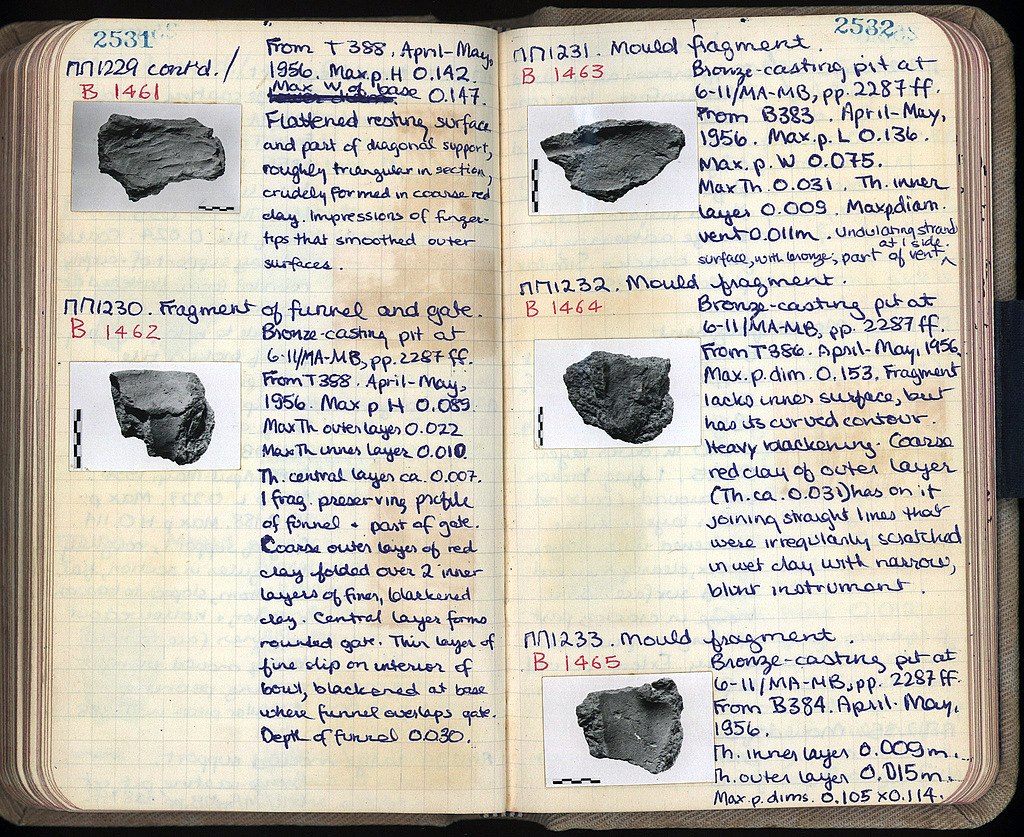 2531
ΠΠ1229 cont'd. /
B 1461
From T 388. April-May,
1956. Max.p.H 0.142.
Max W of base
0.147.
Flattened resting surface
and part of diagonal support,
roughly triangular in section,
crudely formed in coarse red
clay. Impressions of finger-
tips that smoothed outer
surfaces.
ΠΠ1230. Fragment of funnel and gate.
B 1462
Bronze-casting pit at
6-11/MA-MB, pp. 2287 ff.
From T388. April-May,
1956. Max p H 0.089.
Max Th outer layer 0.022
Max Th inner layer 0.010.
Th. central layer ca. 0.007.
1 frag. preserving profile
of funnel + part of gate.
Coarse outer layer of red
clay folded over 2 inner
layers of finer, blackened
clay. Central layer forms
rounded gate. Thin layer of
fine slip on interior of
bowl, blackened at base
where funnel overlaps gate.
Depth of funnel 0.030.
2532
ΠΠ1231. Mould fragment.
B 1463
Bronze-casting pit at
6-11/MA-MB, pp. 2287 ff.
From B383. April-May,
1956. Max.p. L 0.136.
Max. p. W 0.075.
Max Th. 0.031. Th. inner
layer 0.009. Max p diam.
vent 0.011m. Undulating strand
at 1 side.
surface, with bronze; part of vent ^
ΠΠ1232. Mould fragment.
B 1464
Bronze-casting pit at
6-11/MA-MB, pp. 2287 ff.
From T386. April-May, 1956.
Max.p.dim. 0.153. Fragment
lacks inner surface, but
has its curved contour.
Heavy blackening. Coarse
red clay of outer layer
(Th. ca. 0.031) has on it
joining straight lines that
were irregularly scratched
in wet clay with narrow,
blunt instrument.
ΠΠ1233. Mould fragment.
B 1465
Bronze-casting pit at
6-11/MA-MB, pp. 2287 ff.
From B384. April-May,
1956.
Th. inner layer 0.009m.
Th. outer layer 0.015m.
Max.p.dims. 0.105 x 0.114.